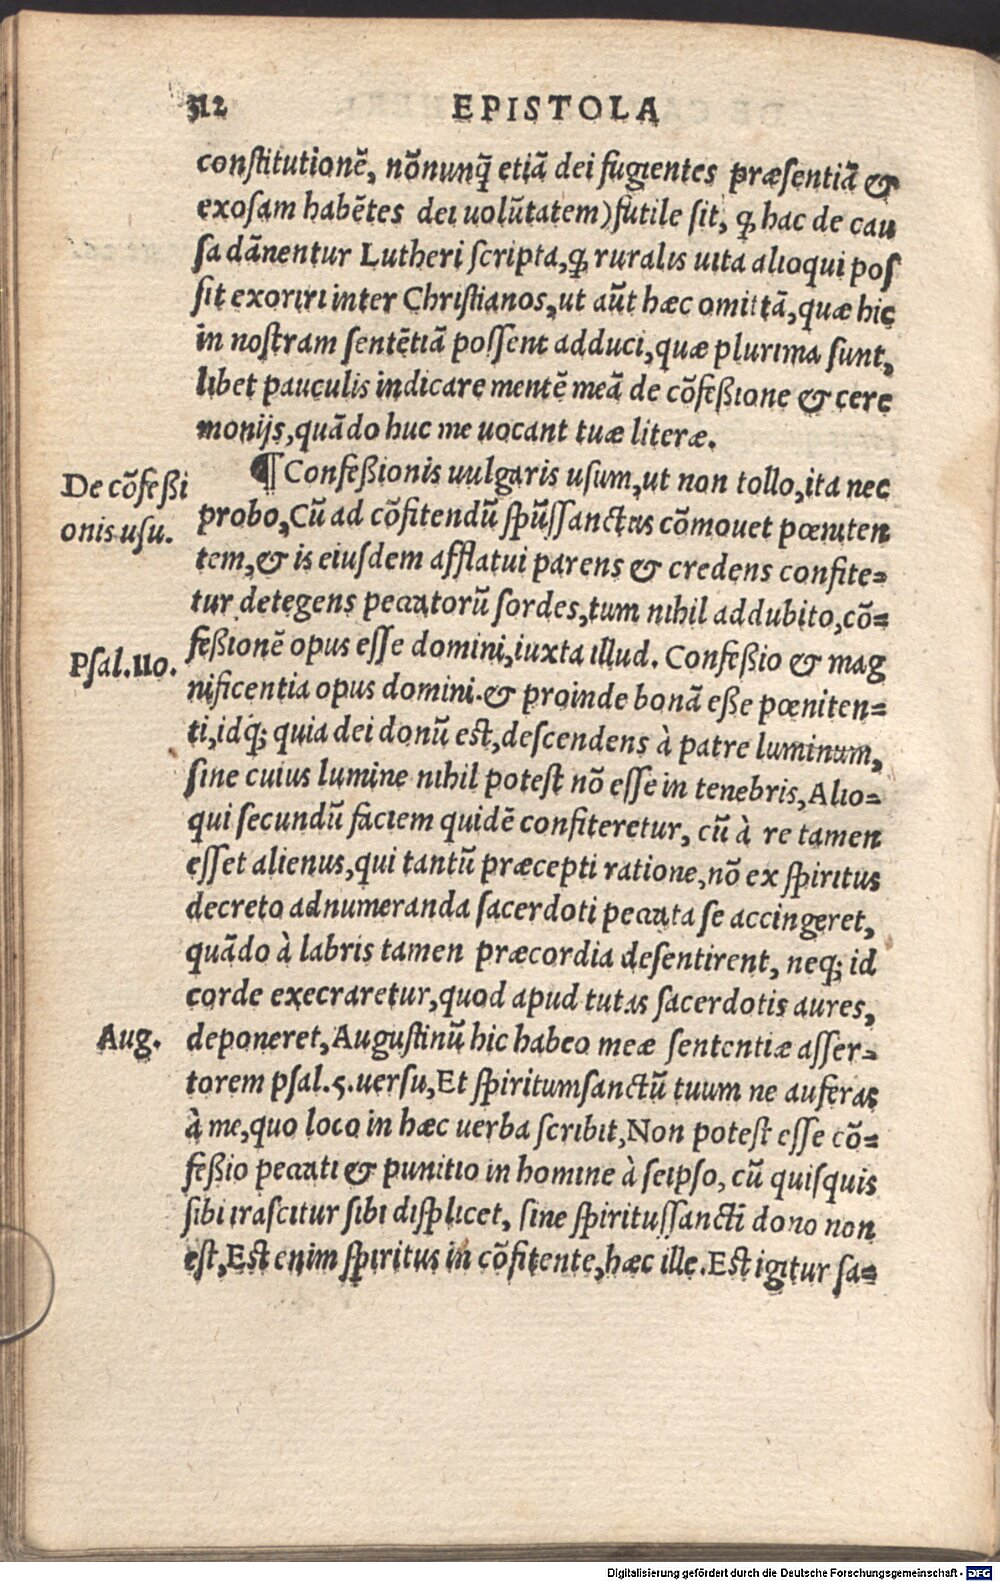 312 EPISTOLA
constitutionē, nōnunq̄ etiā dei fugientes præsentiā &
exosam habētes dei uolūtatem) futile sit, ꝙ hac de cau
sa dānentur Lutheri scripta, ꝙ ruralis uita alioqui pos
sit exoriri inter Christianos, ut aūt hæc omittā, quæ hic
in nostram sentētiā possent adduci, quæ plurima sunt,
libet pauculis indicare mentē meā de cōfeßione & cere
monijs, quādo huc me uocant tuæ literæ.
¶ Confeßionis uulgaris usum, ut non tollo, ita nec
De cōfeßi
onis usu.
probo, Cū ad cōfitendū spūssanctus cōmouet pœniten
tem, & is eiusdem afflatui parens & credens confite=
tur detegens peccatorū sordes, tum nihil addubito, cō=
feßionē opus esse domini, iuxta illud. Confeßio & mag
Psal.110.
nificentia opus domini. & proinde bonā eße pœniten=
ti, idq; quia dei donū est, descendens à patre luminum,
sine cuius lumine nihil potest nō esse in tenebris, Alio=
qui secundū faciem quidē confiteretur, cū à re tamen
esset alienus, qui tantū præcepti ratione, nō ex spiritus
decreto adnumeranda sacerdoti peccata se accingeret,
quādo à labris tamen præcordia desentirent, neq; id
corde execraretur, quod apud tutas sacerdotis aures,
Aug.
deponeret, Augustinū hic habeo meæ sententiæ asser=
torem psal.5.uersu, Et spiritumsanctū tuum ne auferas
à me, quo loco in hæc uerba scribit, Non potest esse cō=
feßio peccati & punitio in homine à seipso, cū quisquis
sibi irascitur sibi displicet, sine spiritussancti dono non
est, Est enim spiritus in cōfitente, hæc ille. Est igitur sa=
Digitalisierung gefördert durch die Deutsche Forschungsgemeinschaft - DFG